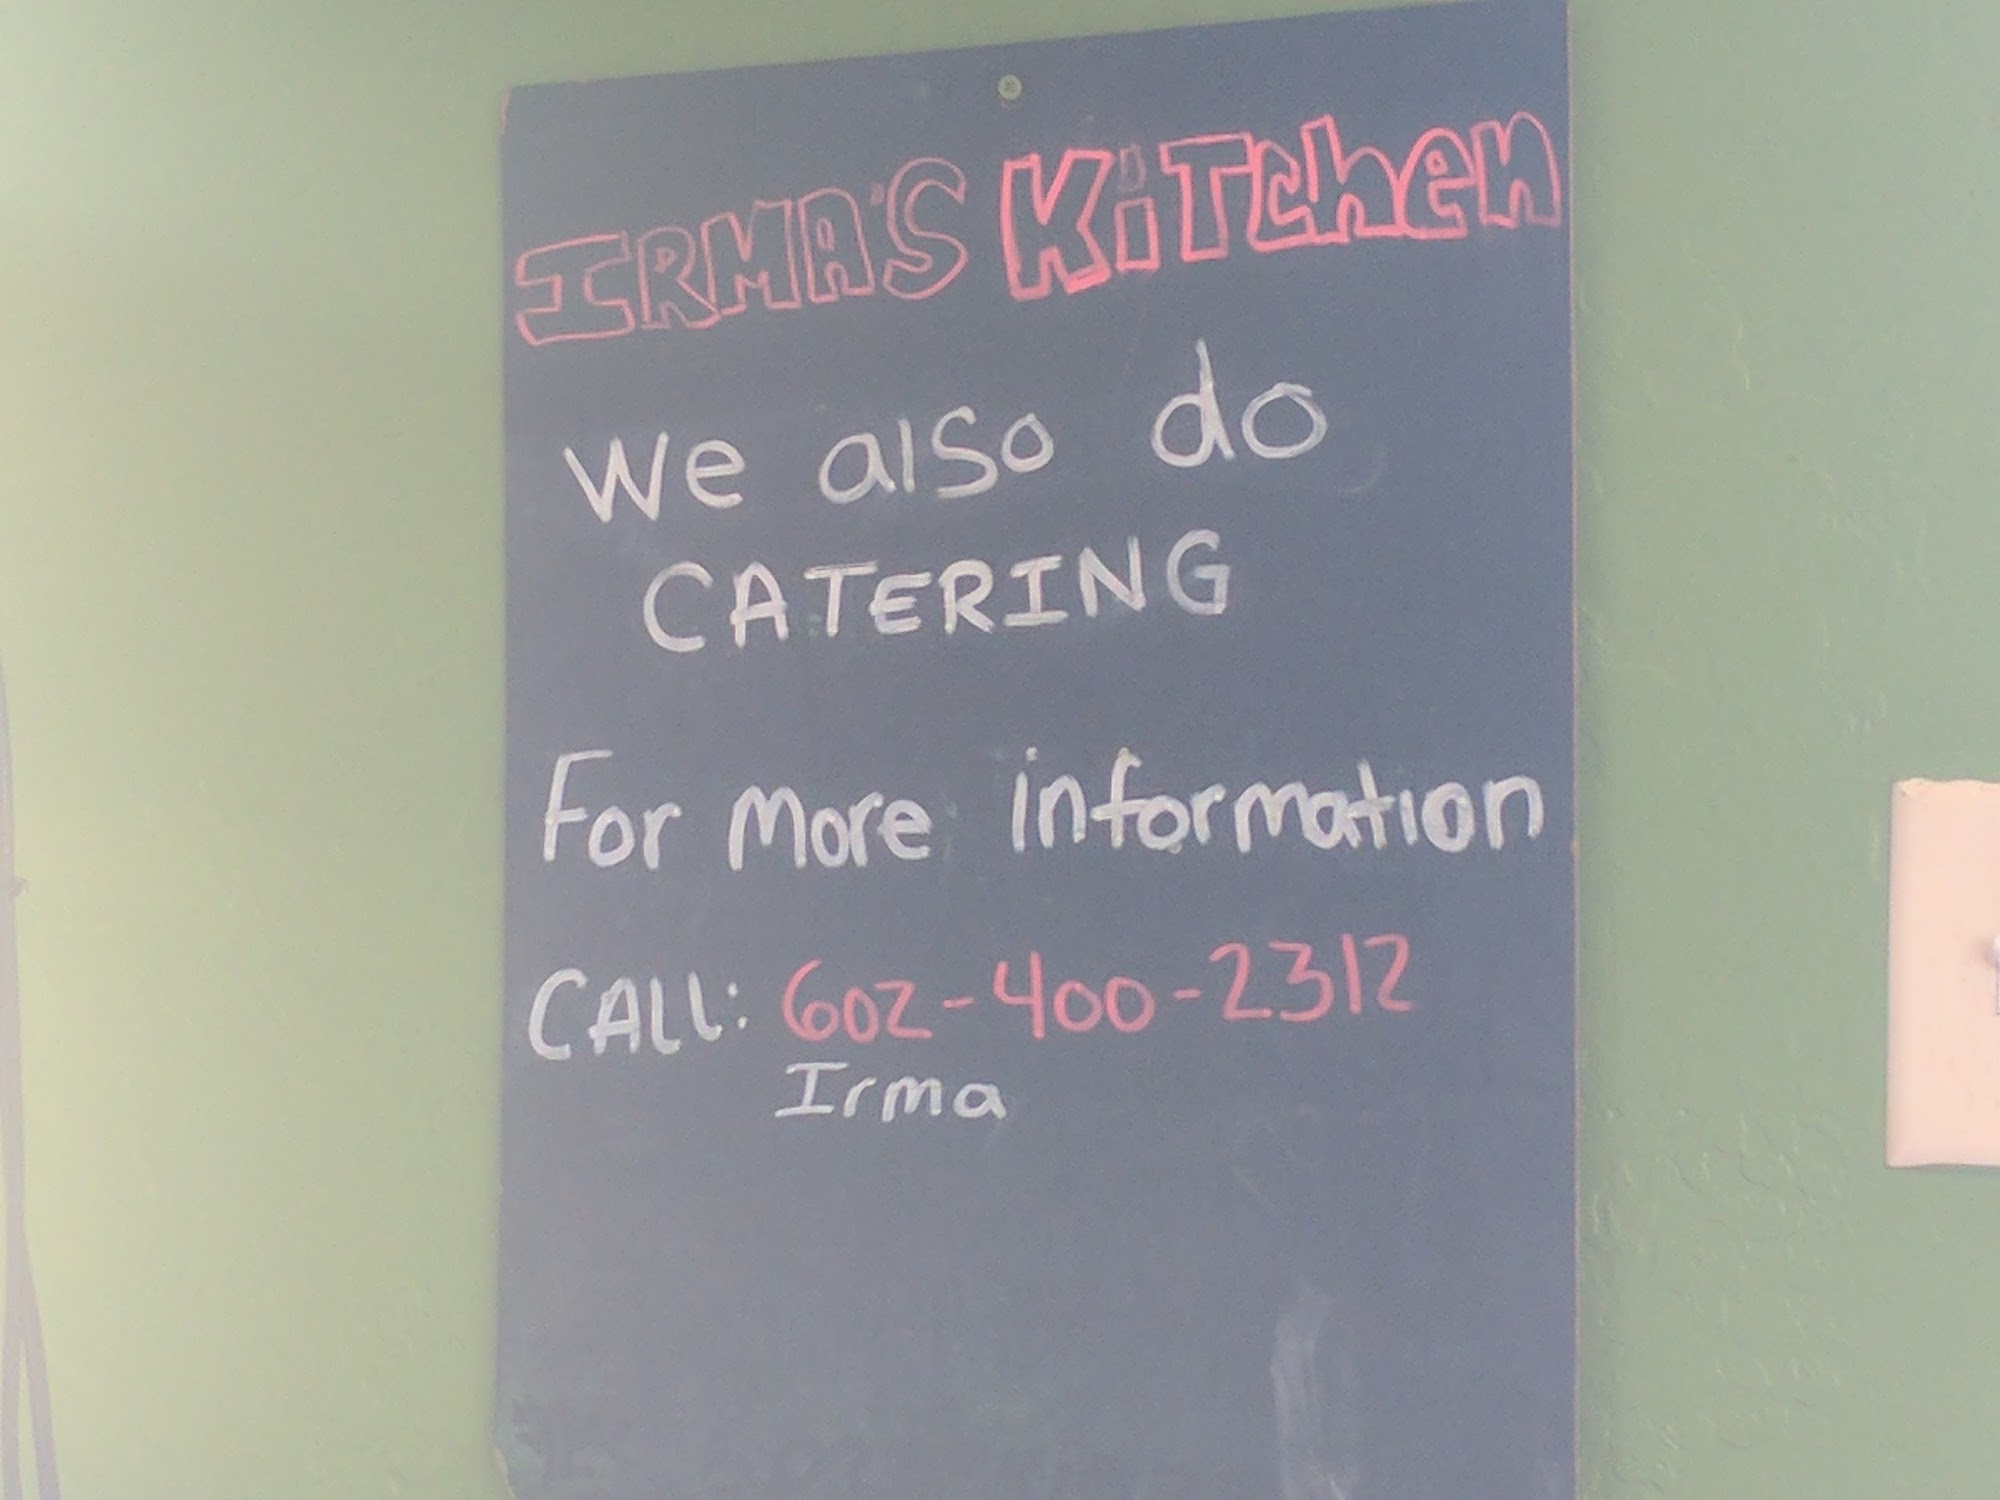 IRMA'S KiTchen
We also do
CATERING
For more information
CALL: 602-400-2312
Irma